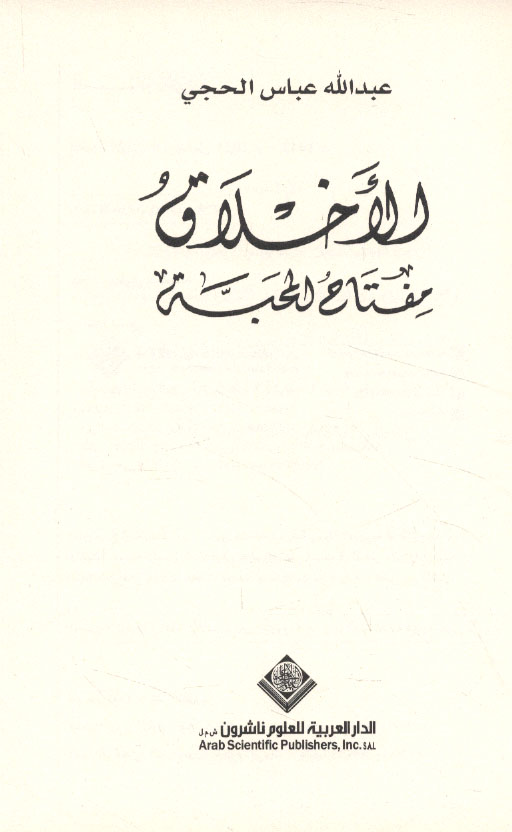 عبدالله عباس الحجي
الأَخْلَاقُ
مِفْتَاحُ المحَبَّة
الدار العربية للعلوم ناشرون ش.م.ل
Arab Scientific Publishers, Inc. S.A.L